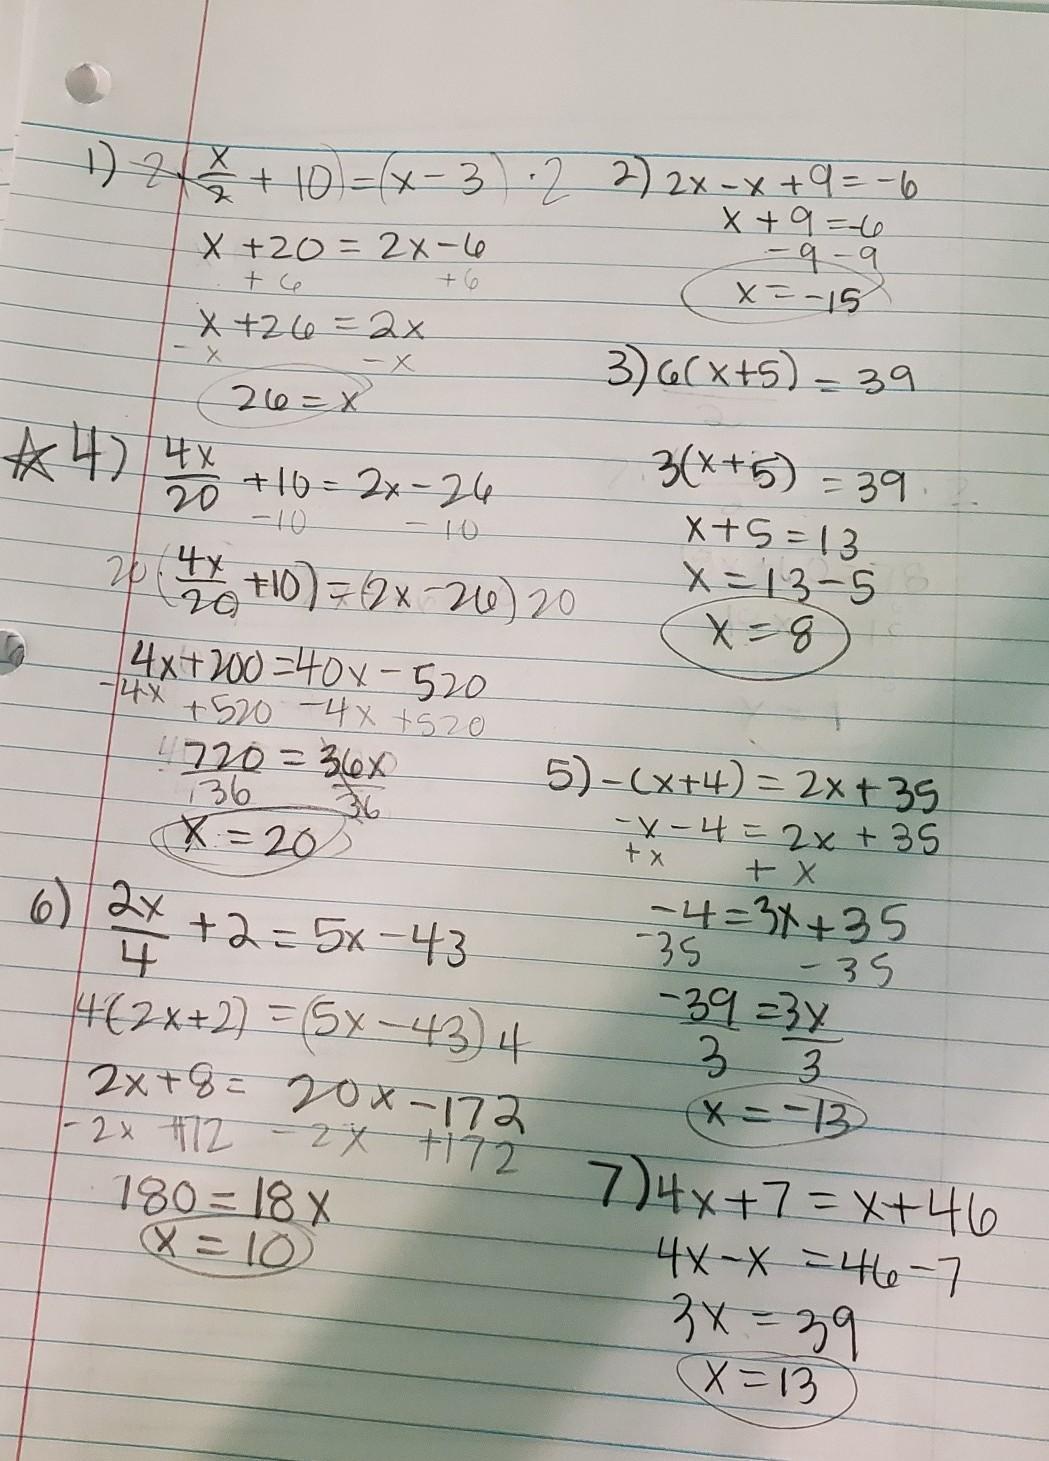 1) 2·(x/2 + 10) = (x - 3) · 2
x + 20 = 2x - 6
+6 +6
x + 26 = 2x
-x -x
26 = x
2) 2x - x + 9 = -6
x + 9 = -6
-9 -9
x = -15
3) 6(x+5) = 39
3(x+5) = 39
x + 5 = 13
x = 13 - 5
x = 8
☆ 4) 4x/20 + 10 = 2x - 26
-10 -10
20(4x/20 + 10) = (2x - 26)20
4x + 200 = 40x - 520
-4x +520 -4x +520
720 = 36x
36 36
x = 20
5) -(x+4) = 2x + 35
-x - 4 = 2x + 35
+x +x
-4 = 3x + 35
-35 -35
-39 = 3x
3 3
x = -13
6) 2x/4 + 2 = 5x - 43
4(2x+2) = (5x - 43)4
2x + 8 = 20x - 172
-2x +172 -2x +172
180 = 18x
x = 10
7) 4x + 7 = x + 46
4x - x = 46 - 7
3x = 39
x = 13